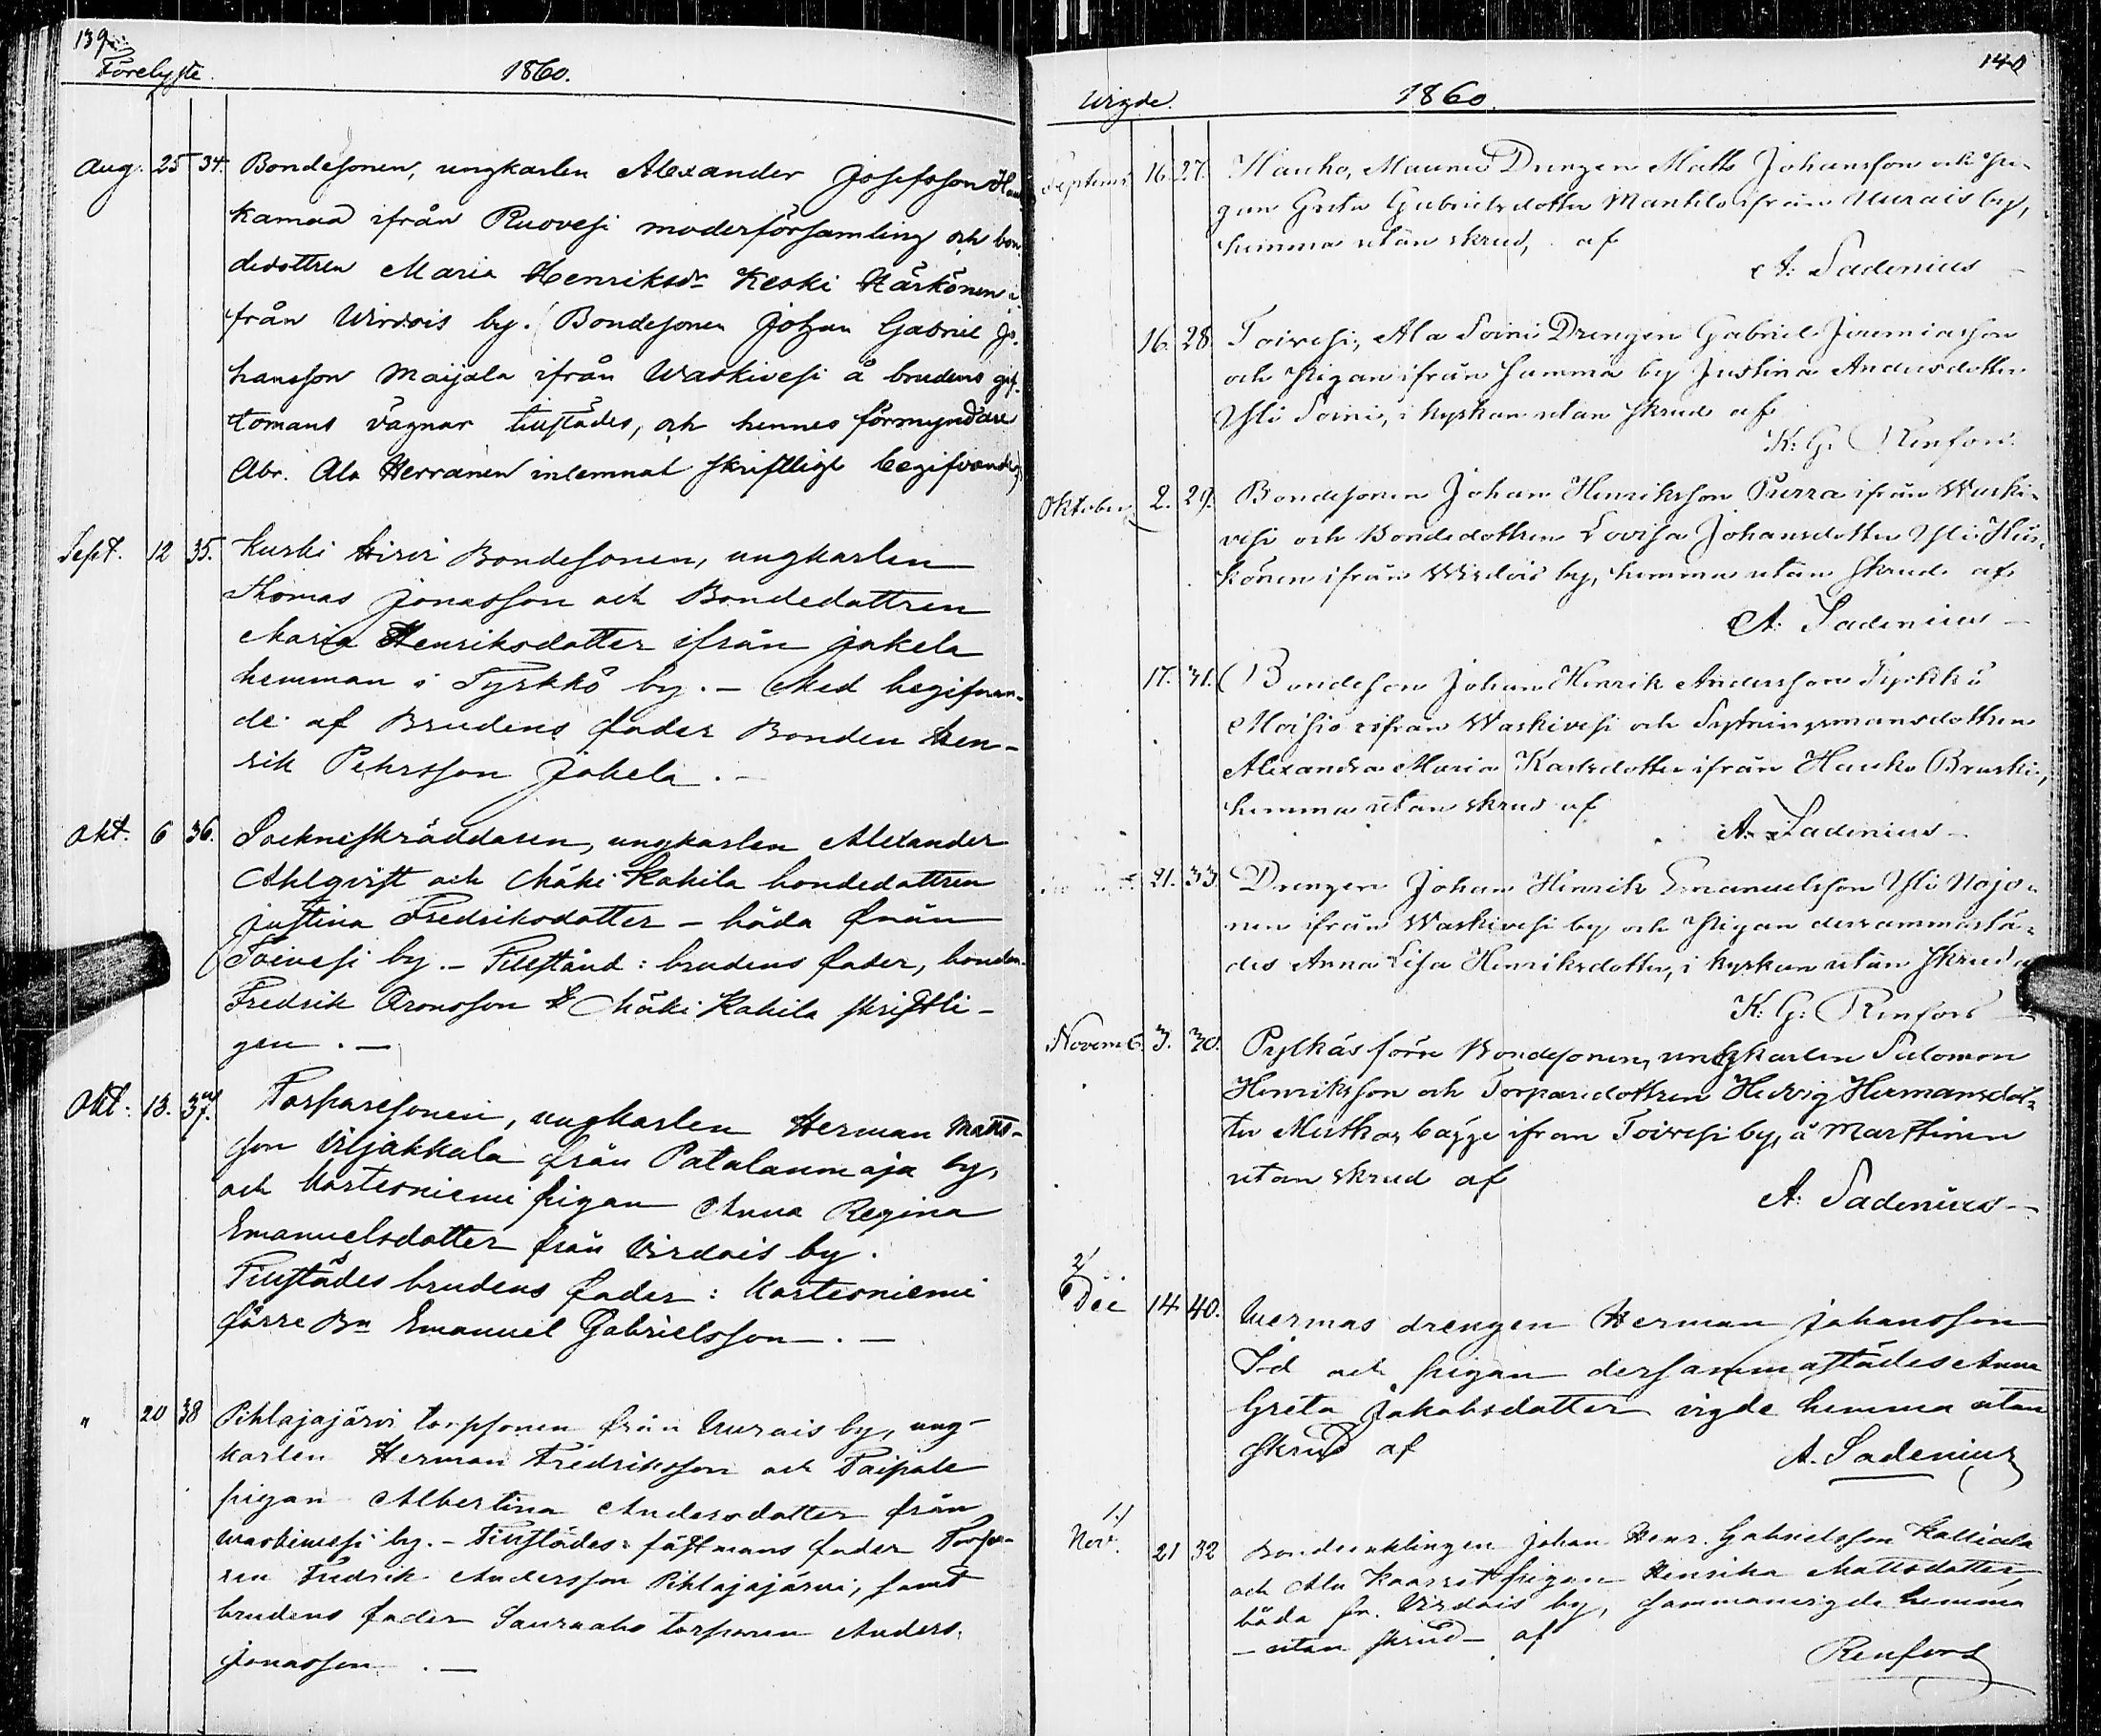 139
Förelyste. 1860.
Aug. 25 34. Bondesonen, ungkarlen Alexander Josefsson
kamaa ifrån Ruovesi moderförsamling och bon-
dedottren Maria Henriksdr Keski Härkönen i-
från Wirdois by. (Bondesonen Johan Gabriel Jo-
hansson Maijala ifrån Waskivesi å brudens gif-
tomans vägnar tillstädes, och hennes förmyndare
Abr. Ala Herranen inlemnat skriftligt begifvande)
Sept. 12 35. Kurki Hirvi Bondesonen, ungkarlen
Thomas Jonasson och Bondedottren
Maria Henriksdotter ifrån Jakela
hemman i Tyrkkö by. – Med begifvan-
de af Brudens fader Bonden Hen-
rik Pehrsson Jakela. –
Okt. 6 36. Sockneskräddaren, ungkarlen Alexander
Ahlqvist och Mäki Kahila bondedottren
Justina Fredriksdotter – båda från
Toivesi by. – Tillstånd: brudens fader, bonden
Fredrik Aronsson Mäki Kahila skriftli-
gen. –
Okt. 13. 37. Torparesonen, ungkarlen Herman Matts-
son Viljakkala från Patalanmaja by,
och Kortesniemi pigan Anna Regina
Emanuelsdotter från Virdois by.
Tillstädes brudens fader: Kortesniemi
förre Bn Emanuel Gabrielsson. –
" 20 38 Pihlajajärvi torpsonen från Kurais by, ung-
karlen Herman Fredriksson och Taipale
pigan Albertina Andersdotter från
Waskivesi by. – Tillstädes: fästmans fader Torpa-
ren Fredrik Andersson Pihlajajärvi, samt
brudens fader torparen Anders
Jonasson. –
140
Wigde. 1860.
Septemb. 16. 27. Hauho, Maunus Drengen Matts Johansson och Pi-
gan Greta Gabrielsdotter Mantila ifrån Kurais by,
hemma utan skrud, af
A. Sadenius –
16. 28. Toivesi, Ala Soini Drengen Gabriel Jeremiasson
och Pigan ifrån samma by Justina Andersdotter
Yli Soini, i kyrkan utan skrud af
K. G. Renfors.
Oktober 2. 29. Bondesonen Johan Henriksson Purra ifrån Waski-
vesi och Bondedottren Lovisa Johansdotter Yli Här-
könen ifrån Wirdois by, hemma utan skrud af
A. Sadenius –
17. 31. Bondeson Johan Henrik Andersson Tyrkkö
Moisio ifrån Waskivesi och Sextningsmansdottren
Alexandra Maria Karlsdotter ifrån Hauho Bruski,
hemma utan skrud af
A. Sadenius –
21. 33. Drengen Johan Henrik Emanuelsson Yli Uojo-
nen ifrån Waskivesi by och Pigan dersammastä-
des Anna Lisa Henriksdotter, i kyrkan utan skrud
K. G. Renfors –
Novemb. 3. 30. Pylkäs förre Bondesonen, ungkarlen Salomon
Henriksson och Torparedottren Hedvig Hermansdot-
ter Mutka, bägge ifrån Toivesi by, å Marttinen
utan skrud af
A. Sadenius –
2/
Dec 14 40. Wermas drengen Herman Johansson
och pigan dersammastädes Anna
Greta Jakobsdotter vigde hemma utan
skrud af
A. Sadenius
1/
Nov. 21 32 Bondeenklingen Johan Henr. Gabrielsson Kalliala
och Ala pigan Henrika Mattsdotter,
båda fr. Virdois by, sammanvigde hemma
– utan skrud – af
Renfors